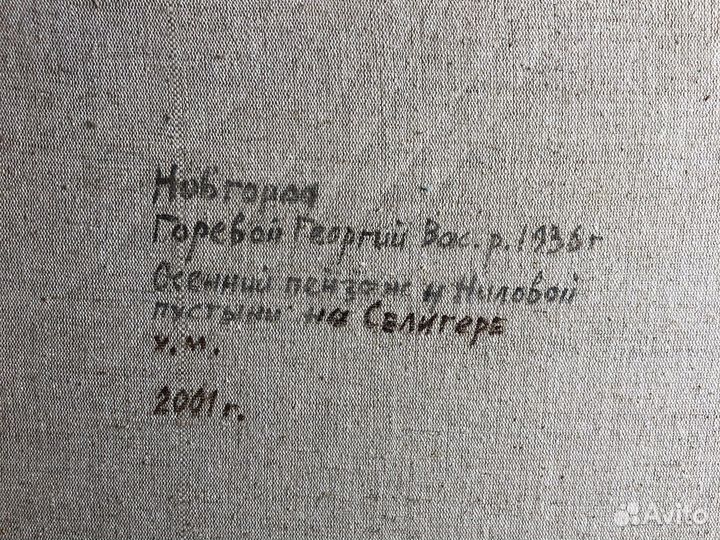 Новгород
Горевой Георгий Вас. р. 1936г
Осенний пейзаж и Ниловой
пустыни на Селигере
х.м.
2001г.
Avito